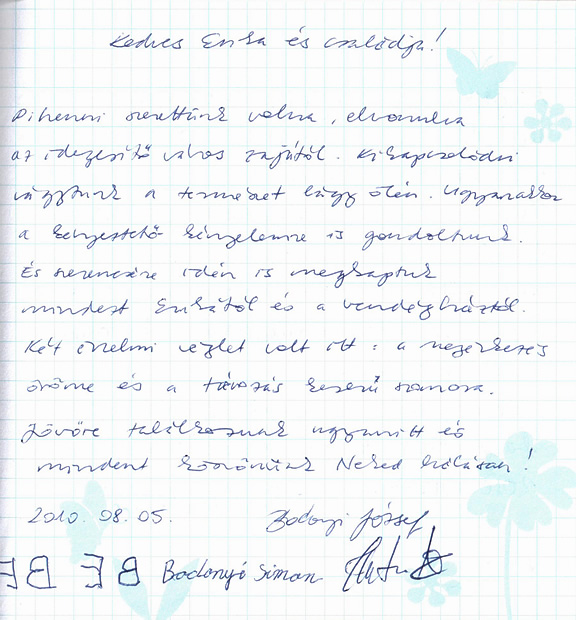 Kedves Erika és családja!
Pihenni szerettünk volna, elvonulva
az idegesítő város zajától. Kikapcsolódni
vágytunk a természet lágy ölén. Ugyanakkor
a kényeztető kényelemre is gondoltunk.
És szerencsére idén is megkaptuk
mindezt Erikától és a vendégháztól.
Két érzelmi véglet volt itt: a megérkezés
öröme és a távozás keserű szomora.
Jövőre találkozunk ugyanitt és
mindent köszönünk Neked hálásan!
2010. 08. 05. Bodonyi József
Bodonyi Simon